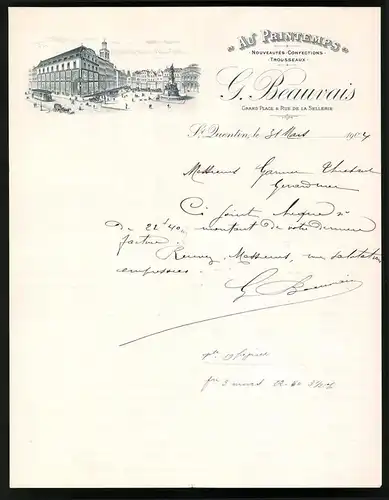 "AU PRINTEMPS"
NOUVEAUTÉS - CONFECTIONS
- TROUSSEAUX -
G. Beauvais
GRAND PLACE & RUE DE LA SELLERIE
St Quentin, le 31 Mars 1904
Messieurs Garnier Thiebaut
Gerardmer
Ci joint cheque
De 22f 40c montant de votre derniere
facture.
Recevez, Messieurs, mes salutations
empressées.
G Beauvais
fre 3 mars